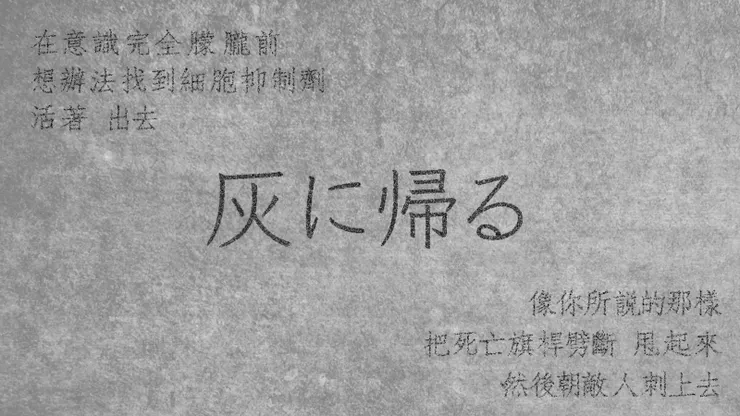 在意識完全朦朧前
想辦法找到細胞抑制劑
活著 出去
灰に帰る
像你所說的那樣
把死亡旗桿劈斷 甩起來
然後朝敵人刺上去